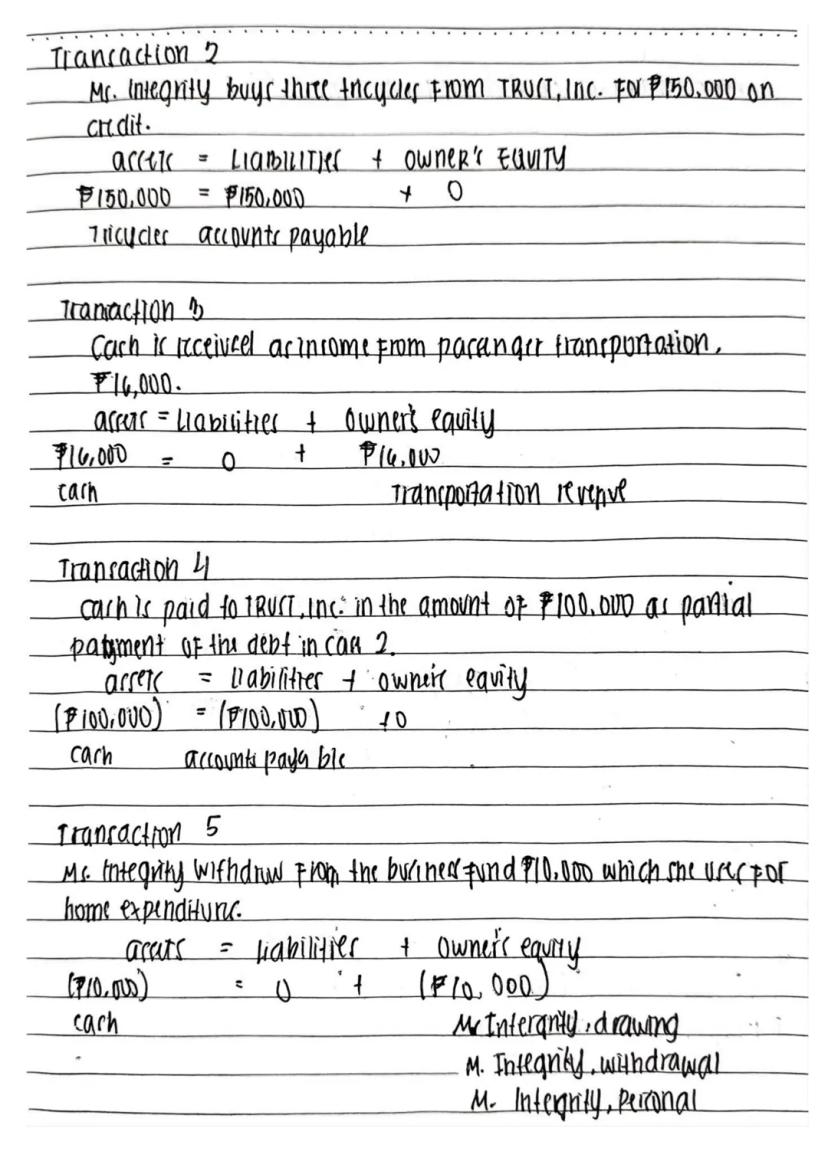 Transaction 2
Ms. Integrity buys three tricycles from TRUST, Inc. For ₱150,000 on
credit.
assets = LIABILITIES + OWNER'S EQUITY
₱150,000 = ₱150,000 + 0
Tricycles accounts payable
Transaction 3
Cash is received as income from passenger transportation,
₱16,000.
assets = Liabilities + Owner's equity
₱16,000 = 0 + ₱16,000
cash Transportation revenue
Transaction 4
cash is paid to TRUST, Inc. in the amount of ₱100,000 as partial
payment of the debt in case 2.
assets = liabilities + owner's equity
(₱100,000) = (₱100,000) +0
cash accounts payable
Transaction 5
Ms. Integrity withdraw from the business fund ₱10,000 which she uses For
home expenditure.
assets = liabilities + Owner's equity
(₱10,000) = 0 + (₱10,000)
cash M. Intergrity, drawing
M. Integrity, withdrawal
M. Integrity, Personal